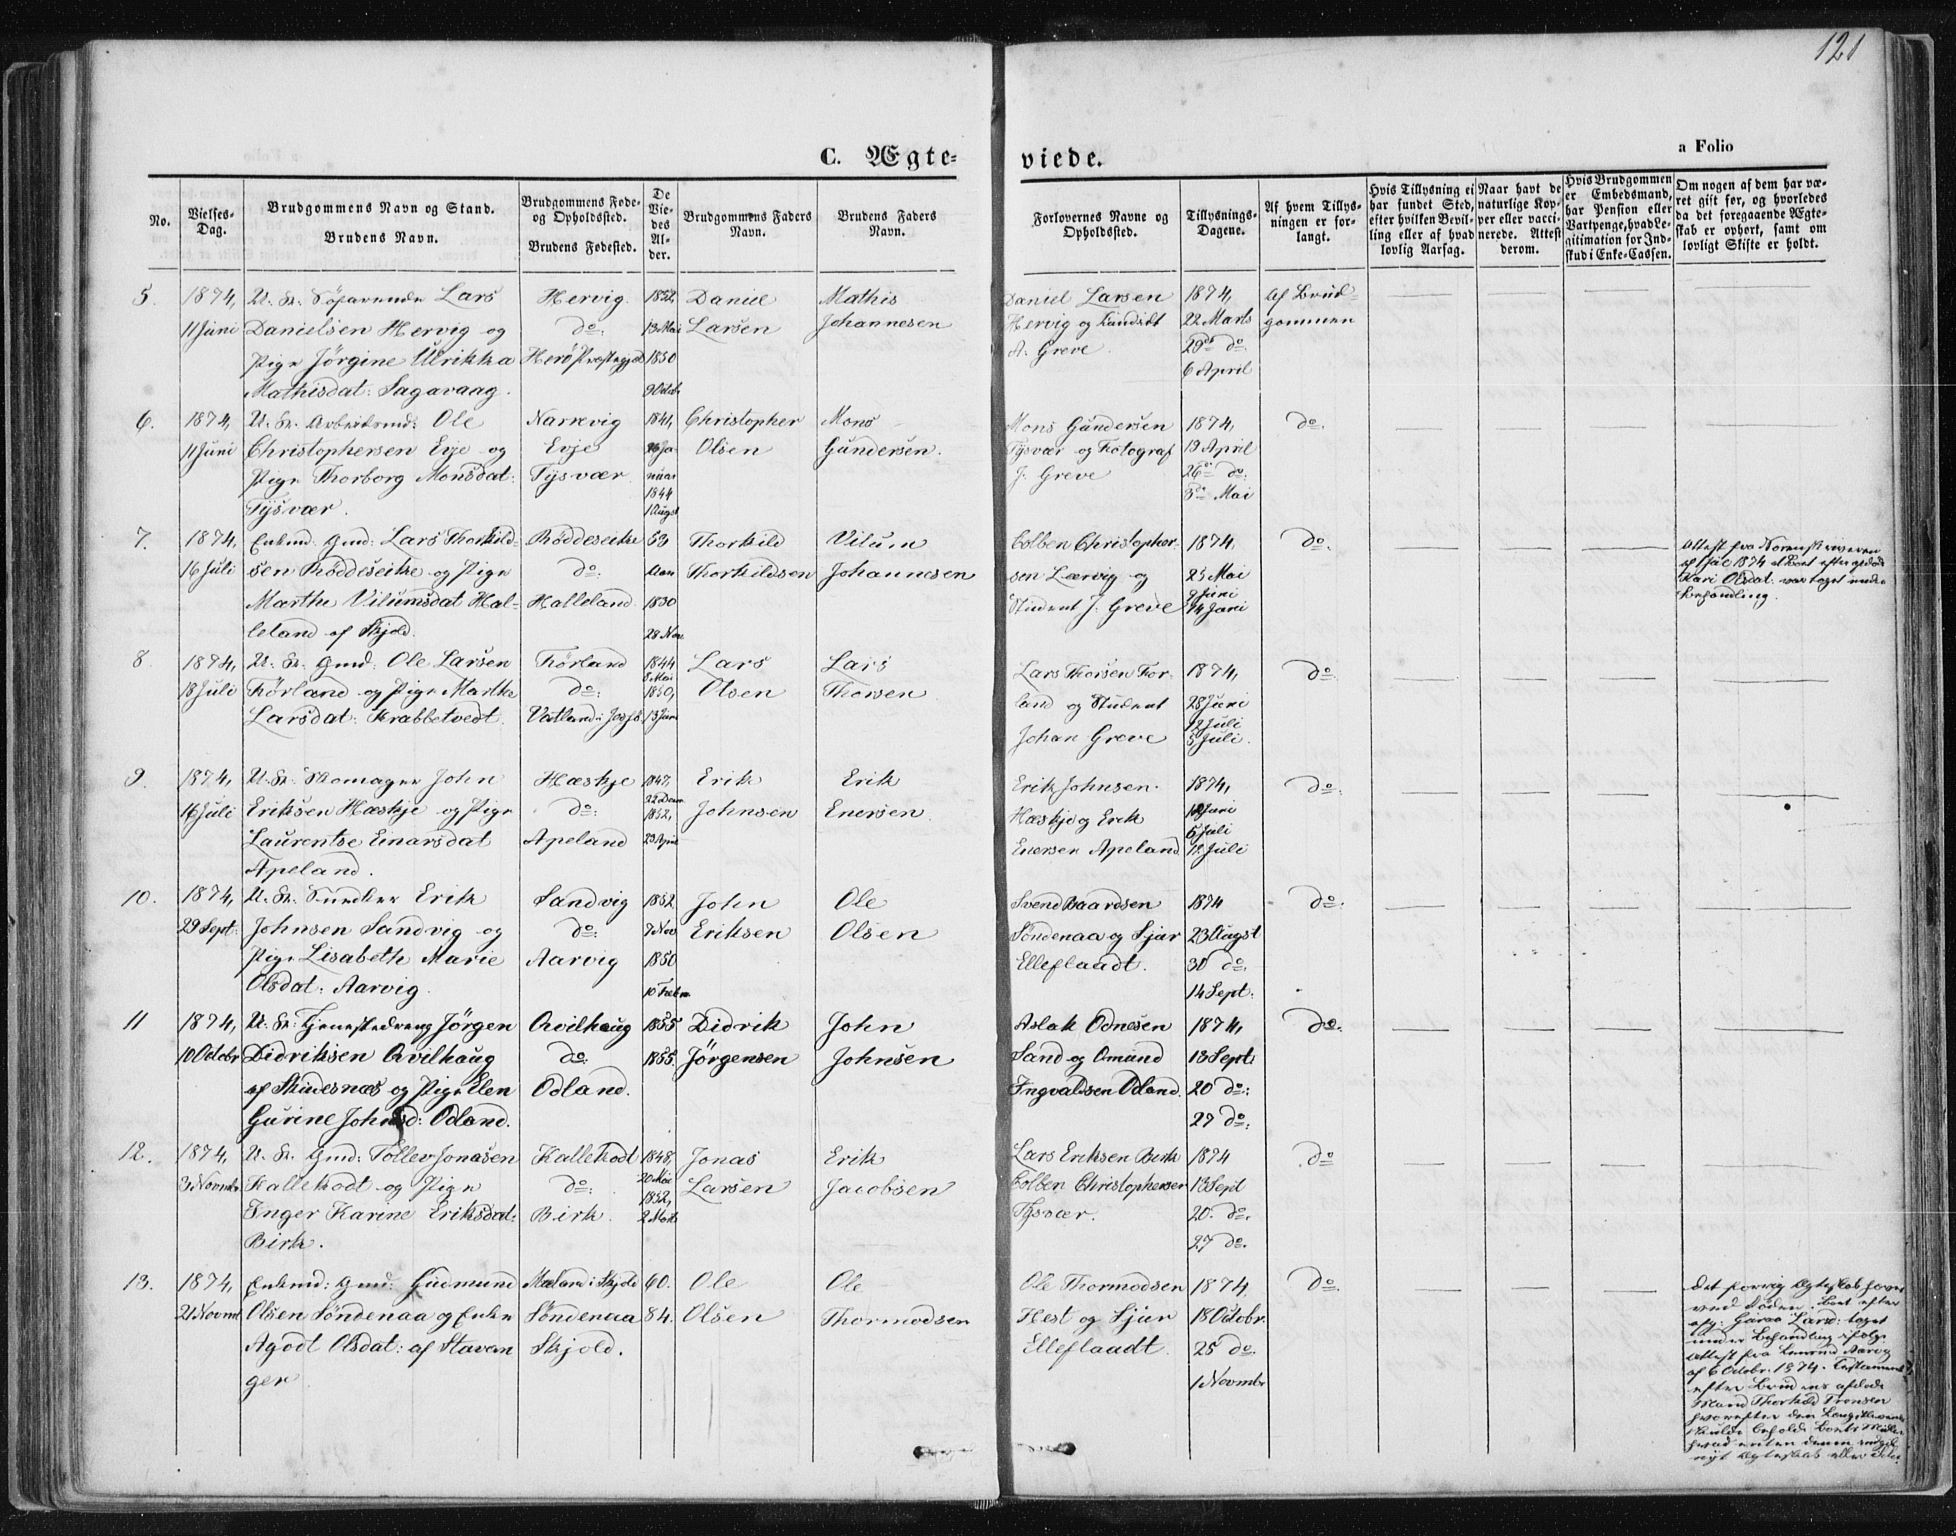 121
C. Ægte-
viede.
a Folio
No.
Vielses-
Dag.
Brudgommens Navn og Stand.
Brudens Navn.
Brudgommens Føde-
og Opholdssted.
Brudens Fødested.
De
Vie-
des
Al-
der.
Brudgommens Faders
Navn.
Brudens Faders
Navn.
Forlovernes Navne og
Opholdssted.
Tillysnings-
Dagene.
Af hvem Tillys-
ningen er for-
langt.
Hvis Tillysning ei
har fundet Sted,
efter hvilken Bevil-
ling eller af hvad
lovlig Aarsag.
Naar havt de
naturlige Kop-
per eller vacci-
nerede. Attest
derom.
Hvis Brudgommen
er Embedsmand,
har Pension eller
Vartpenge, hvad Le-
gitimation for Ind-
skud i Enke-Cassen.
Om nogen af dem har væ-
ret gift før, og hvorledes
da det foregaaende Ægte-
skab er ophørt, samt om
lovligt Skifte er holdt.
5. 1874, U. K. Søfarende Lars Hervig 1852, Daniel Mathis Daniel Larsen 1874, Af Brud-
11 Juni Danielsen Hervig og do: 13 Mai Larsen Johannesen Hervig og Kandidt 22 Marts gommen
Pige Jørgine Ulrikka Herø Præstegjeld 1850 A. Greve. 29de do.
Mathisdat: Sagavaag. 9 Octob 6 April
6. 1874, U. K. Arbeidsmd: Ole Narrevig 1841, Christopher Mons Mons Gundersen 1874, do.
11 Juni Christophersen Evje og Evje Olsen Gundersen. Tysvær og Fotograf 19 April
Pige Thorborg Monsdat: Tysvær nuar J. Greve 26de do:
Tysvær. 1844 1 Augst 3de Mai
7. 1874, Enkmd. Gmd: Lars Thorkild- Røddeseike 53 Thorkild Vilum Colben Christopher- 1874, do. Attest fra
16 Juli sen Røddeseike og Pige do: Aar Thorkildsen Johannesen sen Lærvig og 25 Mai 1874 at Boet efter afdøde
Marthe Vilumsdat Hal- Halleland 1830 Student J. Greve 9 Juni 14 Juni Kari Olsdat: var taget under
leland af Skjold. 28 Nov. Behandling.
8. 1874, U. K. Gmd: Ole Larsen Førland 1844 Lars Lars Lars Thorsen For- 1874, do.
18 Juli Førland og Pige Marthe do: 8 Mai 1850, Olsen Thorsen land og Student 28 Juni
Larsdat: Krabbetvedt. Vatland i 13 Juni Johan Greve 12 Juli 5 Juli.
9. 1874, U. K. Skomager John Hæskje 1847, Erik Erik Erik Johnsen 1874, do.
16 Juli Eriksen Hæskje og Pige do: 22 Decm 1852, Johnsen Enersen. Hæskje og Erik Juni 5 Juli
Laurentse Einarsdat Apeland 23 April Enersen Apeland 12 Juli
Apeland.
10. 1874, U. K. Snedker Erik Sandvig 1852 John Ole Svend Baardsen 1874 do.
29 Sept: Johnsen Sandvig og do: 7 Nov Eriksen Olsen Søndenaa og Sjur 23 Augst
Pige Lisabeth Marie Aarvig 1850 Elleflaadt. 30 do.
Olsdat: Aarvig. 10 Febr. 14 Sept.
11 1874, U. K: Tjenestedreng Jørgen Qvilhaug 1855 Didrik John Aslak Odnesen 1874, do.
10 Octobr Didriksen Qvilhaug do: 1855, Jørgensen Johnsen Sand og Omund 13 Sept
af Skudesnæs og Pige Elen Odland. Ingvaldsen Odland. 20 do:
Gurine Johnsd: Odland. 27 do.
12. 1874, U. K. Gmd: Tollev Jonasen Kallekodt 1848, Jonas Erik Lars Eriksen Birk 1874 do
3 Novmbr Kallekodt og Pige do: 20 Mai 1852, Larsen Jacobsen Colben Christophersen 13 Sept
Inger Karine Eriksdat: Birk. 2 Marts Tysvær. 20. do.
Birk. 27 do.
13. 1874, Enkmd: Gmd: Gudmund Mæland i Skjold 60. Ole Ole Ole Thormodsen 1874, do. Det forrig Ægteskab hævet
21 Novmb Olsen Søndenaa og Enken Søndenaa 84. Olsen Thormodsen Hest og Sjur 18 Octobr. ved Døden. Boet efter
Agodt Olsdat: af Stavan Skjold. Elleflaadt. 25 do. Larsd: taget
ger. 1 Novmbr under Behandling ifølge
Attest fra Lensmd Aarvig
af 6 Octobr. 1874. Testament
efter Brudens afdøde
Mand Thorkild Tronsen
hvorefter den Længstlevende
skulde beholde Boets Midler